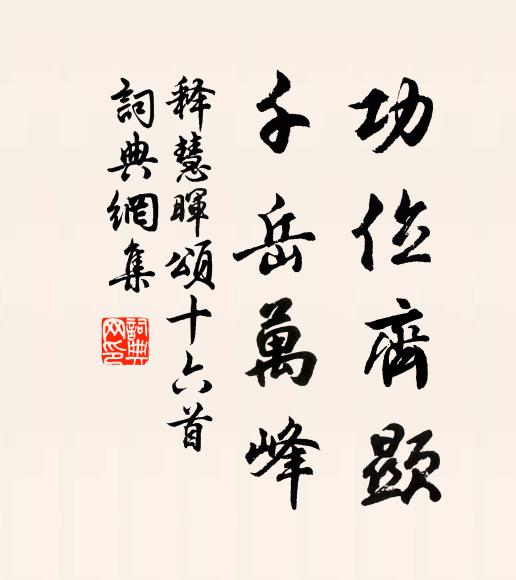 功位齊顯
千岳萬峰
释慧暉頌十六首
詞典網集
詞典
网印